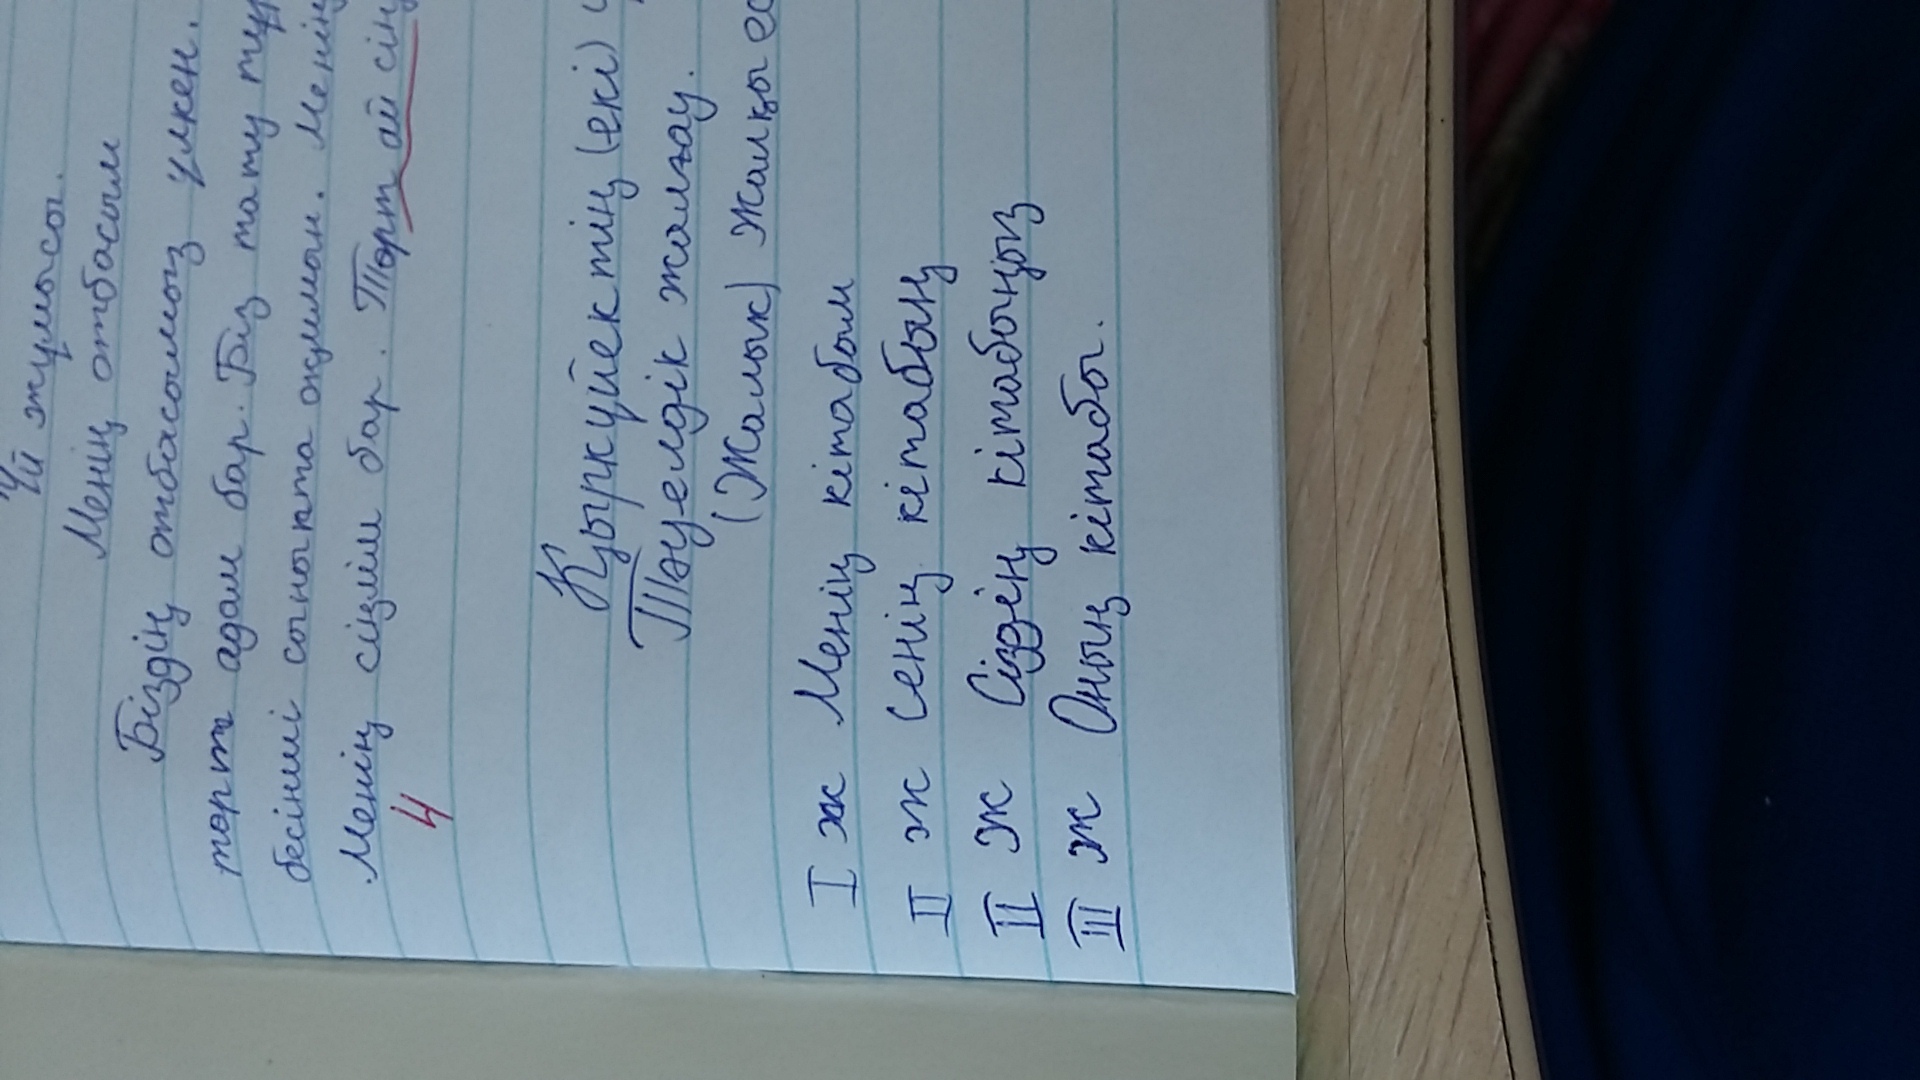 Үй жұмысы.
Менің отбасым
Біздің отбасымыз үлкен.
төрт адам бар. Біз тату
бесінші сыныпта оқимын. Менің
Менің сіңлім бар. Төрт ай
4
Қыркүйектің (екі)
Тәуелдік жалғау.
(Жалық) жалқы
I ж Менің кітабым
II ж Сенің кітабың
II ж Сіздің кітабыңыз
III ж Оның кітабы.